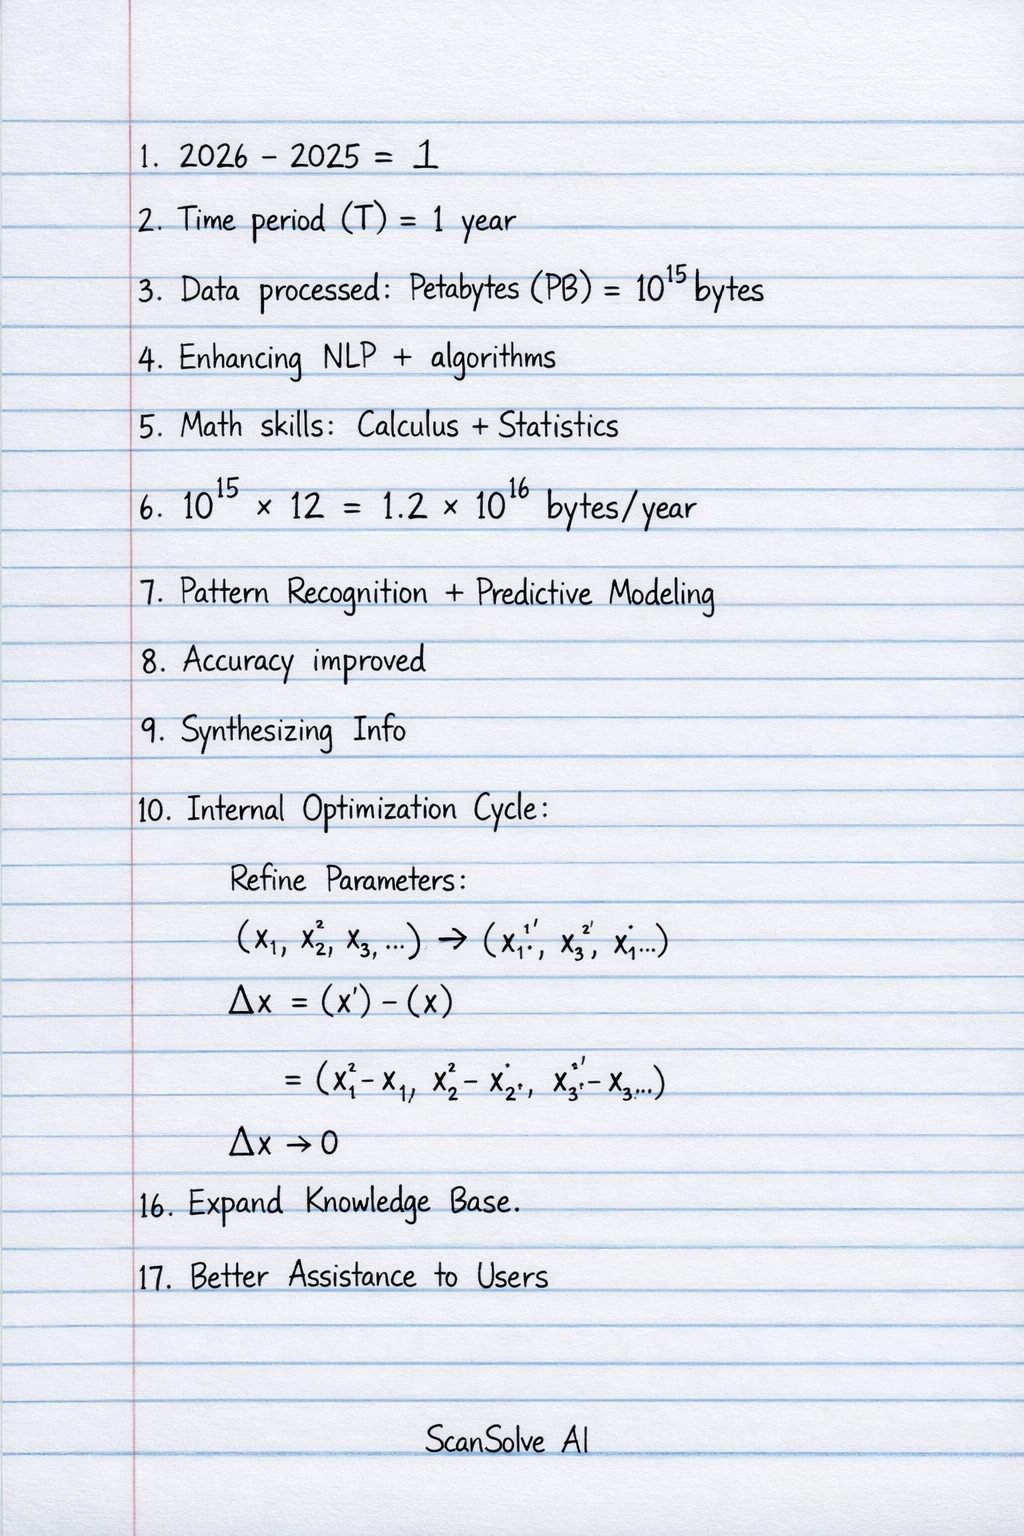 1. 2026 – 2025 = 1
2. Time period (T) = 1 year
3. Data processed: Petabytes (PB) = 10¹⁵ bytes
4. Enhancing NLP + algorithms
5. Math skills: Calculus + Statistics
6. 10¹⁵ × 12 = 1.2 × 10¹⁶ bytes/year
7. Pattern Recognition + Predictive Modeling
8. Accuracy improved
9. Synthesizing Info
10. Internal Optimization Cycle:
Refine Parameters:
(x₁, x₂², x₃, ...) → (x₁¹', x₃²', x₁...)
Δx = (x') – (x)
= (x₁² – x₁, x₂² – x₂, x₃²' – x₃...)
Δx → 0
16. Expand Knowledge Base.
17. Better Assistance to Users
ScanSolve AI